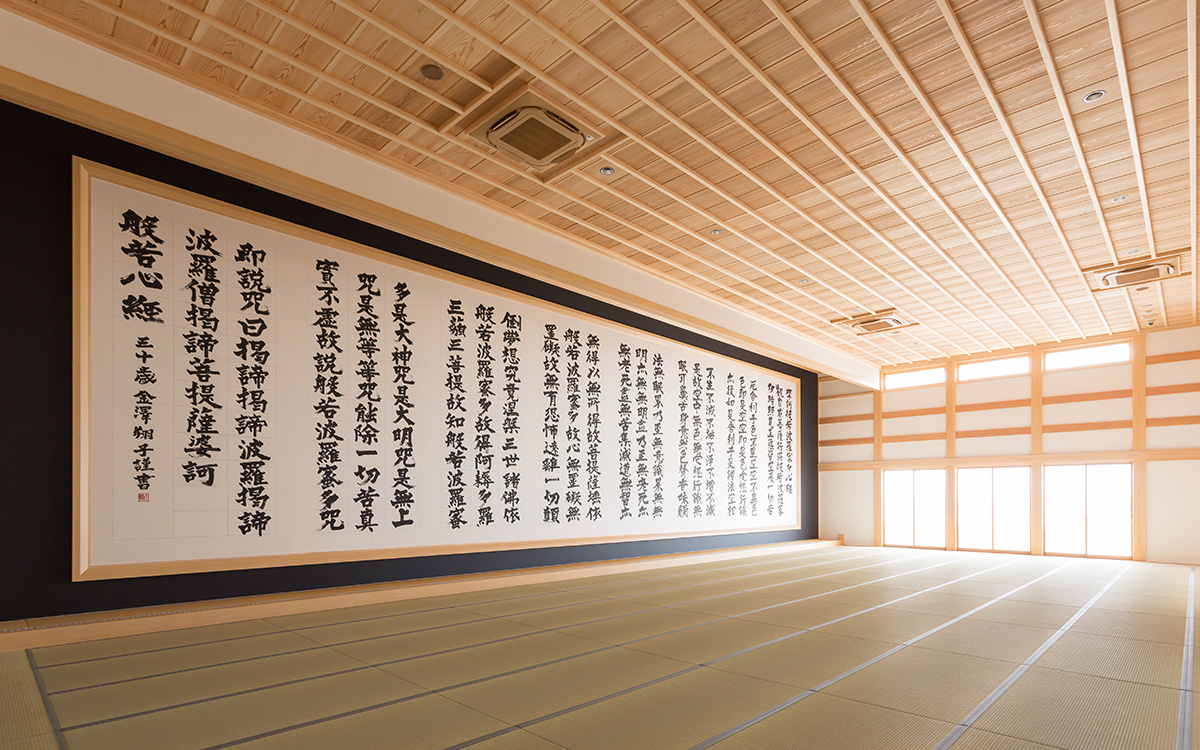 摩訶般若波羅蜜多心經
觀自在菩薩行深般若波羅蜜
多時照見五蘊皆空度一切苦
厄舍利子色不異空空不異色
色即是空空即是色受想行識
亦復如是舍利子是諸法空相
不生不滅不垢不淨不增不減
是故空中無色無受想行識無
眼耳鼻舌身意無色聲香味觸
法無眼界乃至無意識界無無
明亦無無明盡乃至無老死亦
無老死盡無苦集滅道無智亦
無得以無所得故菩提薩埵依
般若波羅蜜多故心無罣礙無
罣礙故無有恐怖遠離一切顛
倒夢想究竟涅槃三世諸佛依
般若波羅蜜多故得阿耨多羅
三藐三菩提故知般若波羅蜜
多是大神咒是大明咒是無上
咒是無等等咒能除一切苦真
實不虛故說般若波羅蜜多咒
即説咒曰揭諦揭諦波羅揭諦
波羅僧揭諦菩提薩婆訶
般若心經 三十歳 金澤翔子謹書